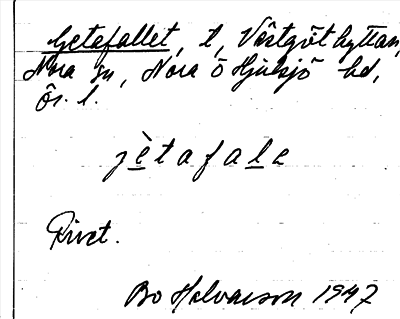 Getafallet, t, Västgöthyttan,
Nora sn, Nora o Hjulsjö hd,
Ör. l.
jètafale
Rivet.
Bo Halvarson 1947